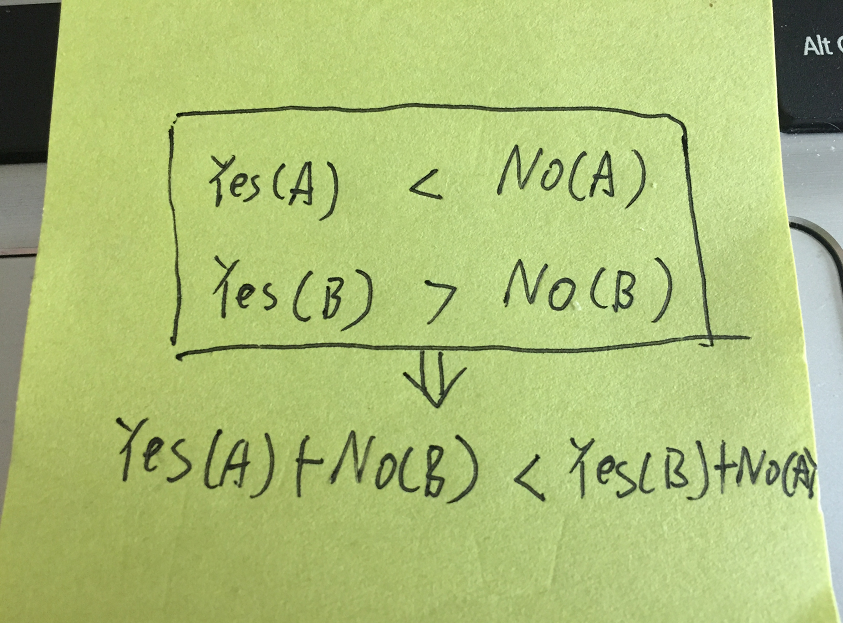 Alt
Yes(A) < No(A)
Yes(B) > No(B)
⇓
Yes(A)+No(B) < Yes(B)+No(A)